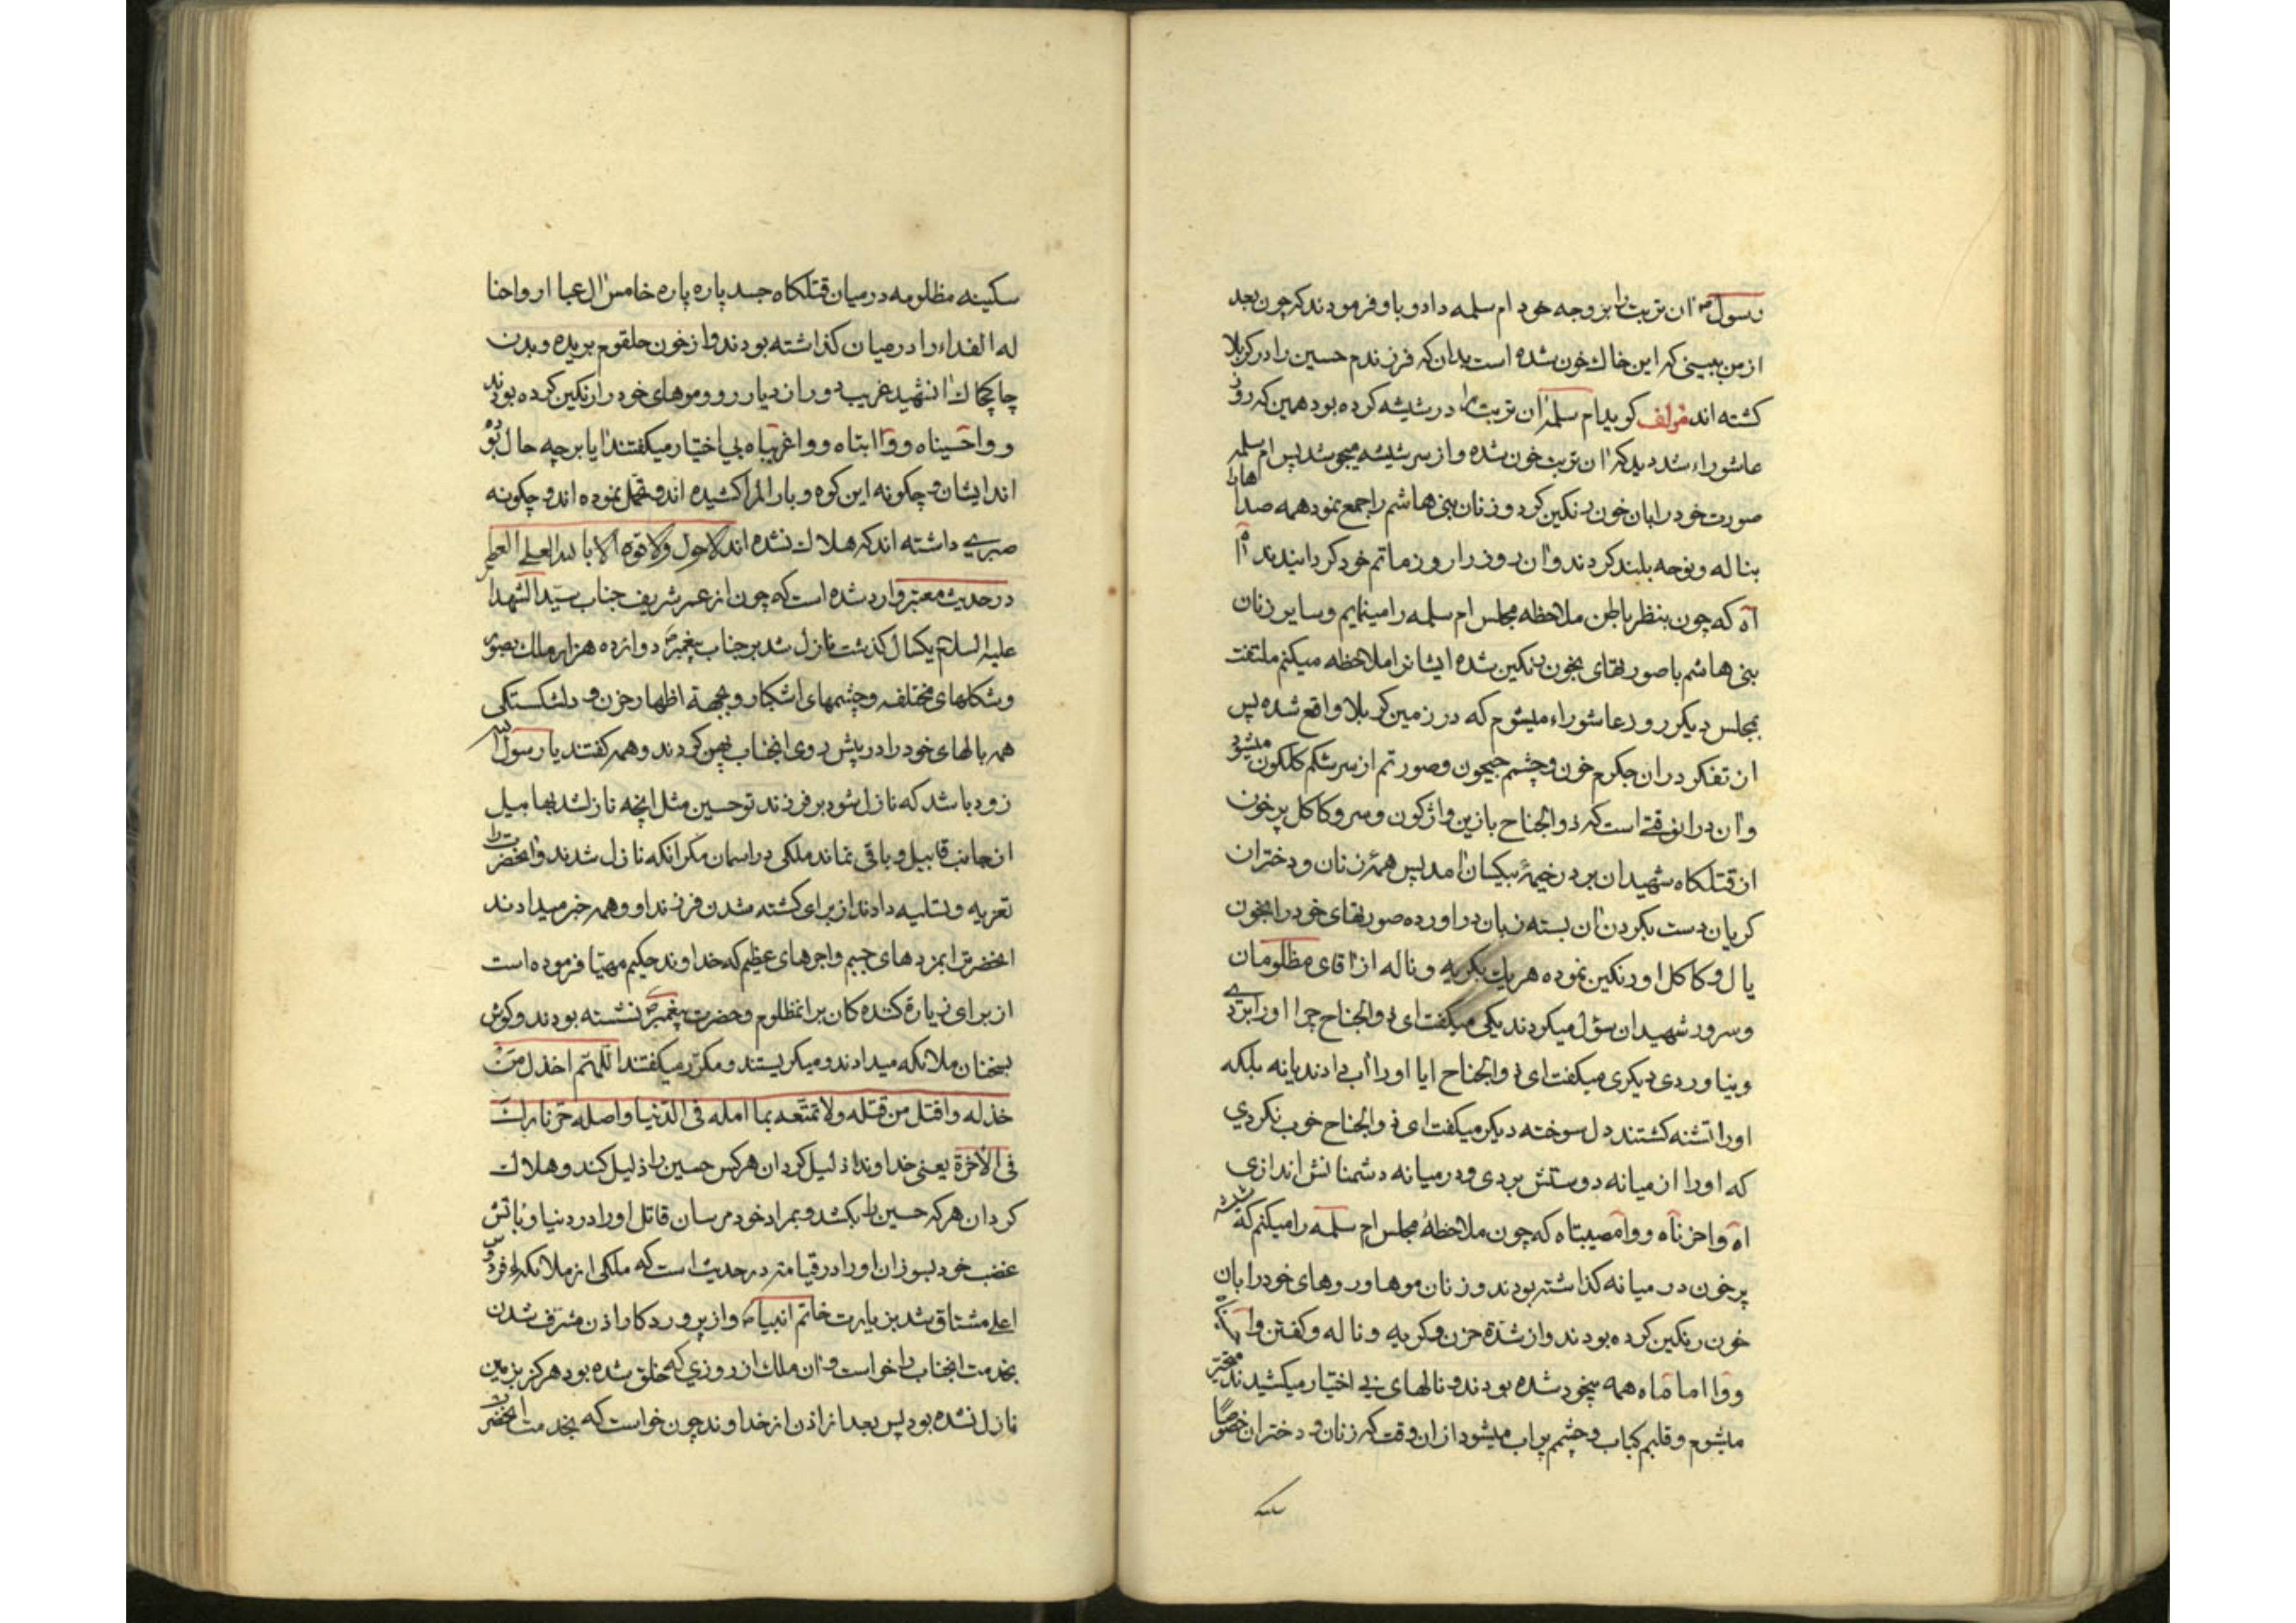 رسول ص آن تربت را بزوجه خود ام سلمه داد و باو فرمودند که چون بعد
از من ببینی که این خاک خون شده است بدان که فرزندم حسین را در کربلا
کشته اند مؤلف کوید ام سلمه آن تربت را در شیشه کرده بود همین که روز
عاشوراء شد دید که آن تربت خون شده و از سر شیشه میجوشد پس ام سلمه
صورت خود را بان خون رنکین کرد و زنان بنی هاشم را جمع نمود همه صداهارا
بناله و نوحه بلند کردند و آن روز را روز ماتم خود کردانیدند آه
آه که چون بنظر باطن ملاحظه مجلس ام سلمه را مینمایم و سایر زنان
بنی هاشم با صورتهای بخون رنکین شده ایشانرا ملاحظه میکنم ملتفت
بمجلس دیکر روز عاشوراء میشوم که در زمین کربلا واقع شده پس
از تفکر در ان جکرم خون و چشم جیحون و صورتم از سرشکم کلکون میشود
و آن در آنوقتی است که ذوالجناح با زین واژکون و سر و کاکل پر خون
از قتلکاه شهیدان بر در خیمهٔ بیکسان آمد پس همهٔ زنان و دختران
کریان دست بکردن آن بسته زبان در اورده صورتهای خود را بخون
یال و کاکل او رنکین نموده هر یک بکریه و ناله از آقای مظلومان
و سرور شهیدان سؤل میکردند یکی میکفت ای ذوالجناح چرا او را بردی
و نیاوردی دیکری میکفت ای ذوالجناح ایا او را آب دادند یا نه بلکه
او را تشنه کشتند دل سوخته دیکر میکفت ای ذوالجناح خوب نکردی
که او را از میانه دوستش بردی و در میانه دشمنانش اندازی
اه واحزناه و وامصیبتاه که چون ملاحظهٔ مجلس ام سلمه را میکنم که شیشه
پر خون در میانه کذاشته بودند و زنان موها و روهای خود را بان
خون رنکین کرده بودند و از شدّة حزن و کریه و ناله و کفتن
و وا اماماه همه بیخود شده بودند و نالهای بی اختیار میکشیدند متحیر
میشوم و قلبم کباب و چشمم پر اب میشود از ان وقت که زنان و دختران خصوصًا
سکینه
سکینه مظلومه در میان قتلکاه جسد پاره پاره خامس آل عبا ارواحنا
له الفداء را در میان کذاشته بودند و از خون حلقوم بریده و بدن
چاکچاک آنشهید غریب دور از دیار رو و موهای خود را رنکین کرده بودند
و واحسیناه و وا ابتاه و واغریباه بی اختیار میکفتند آیا بر چه حال بوده
اند ایشان و چکونه این کوه و بار الم را کشیده اند و تحمل نموده اند و چکونه
صبری داشته اند که هلاک نشده اند لا حول ولا قوة الا بالله العلی العظیم
در حدیث معتبر وارد شده است که چون از عمر شریف جناب سیّد الشهدا
علیه السلام یکسال کذشت نازل شد بر جناب پیغمبر ص دوازده هزار ملک بصور
و شکلهای مختلفه و چشمهای اشکبار و بجهة اظهار حزن و دلشکستکی
همه بالهای خود را در پیش روی انجناب پهن کردند و همه کفتند یا رسول الله
زود باشد که نازل شود بر فرزند تو حسین مثل انچه نازل شد بهابیل
از جانب قابیل و باقی نماند ملکی در اسمان مکر انکه نازل شدند و آنحضرت را
تعزیه و تسلیه دادند از برای کشته شدن فرزند او و همه خبر میدادند
انحضرت را بمزدهای جسیم و اجرهای عظیم که خداوند حکیم مهیّا فرموده است
از برای زیارة کننده کان بر انمظلوم و حضرت پیغمبر ص نشسته بودند و کوش
بسخنان ملائکه میدادند و میکریستند و مکرّر میکفتند اللّهمّ اخذل مَنْ
خذله و اقتل من قتله ولا تمتّعه بما امله فی الدّنیا و اصله حرّ نارك
فی الآخرة یعنی خداوندا ذلیل کردان هرکس حسین را ذلیل کند و هلاک
کردان هر که حسین را بکشد و بمراد خود مرسان قاتل او را در دنیا و باتش
غضب خود بسوزان او را در قیامت در حدیث است که ملکی از ملائکهٔ فردوس
اعلی مشتاق شد بزیارت خاتم انبیاء ص و از پروردکار اذن مشرف شدن
بخدمت انجناب را خواست و آن ملک از روزی که خلق شده بود هرکز بزمین
نازل نشده بود پس بعد از اذن از خداوند چون خواست که بخدمت انحضرت